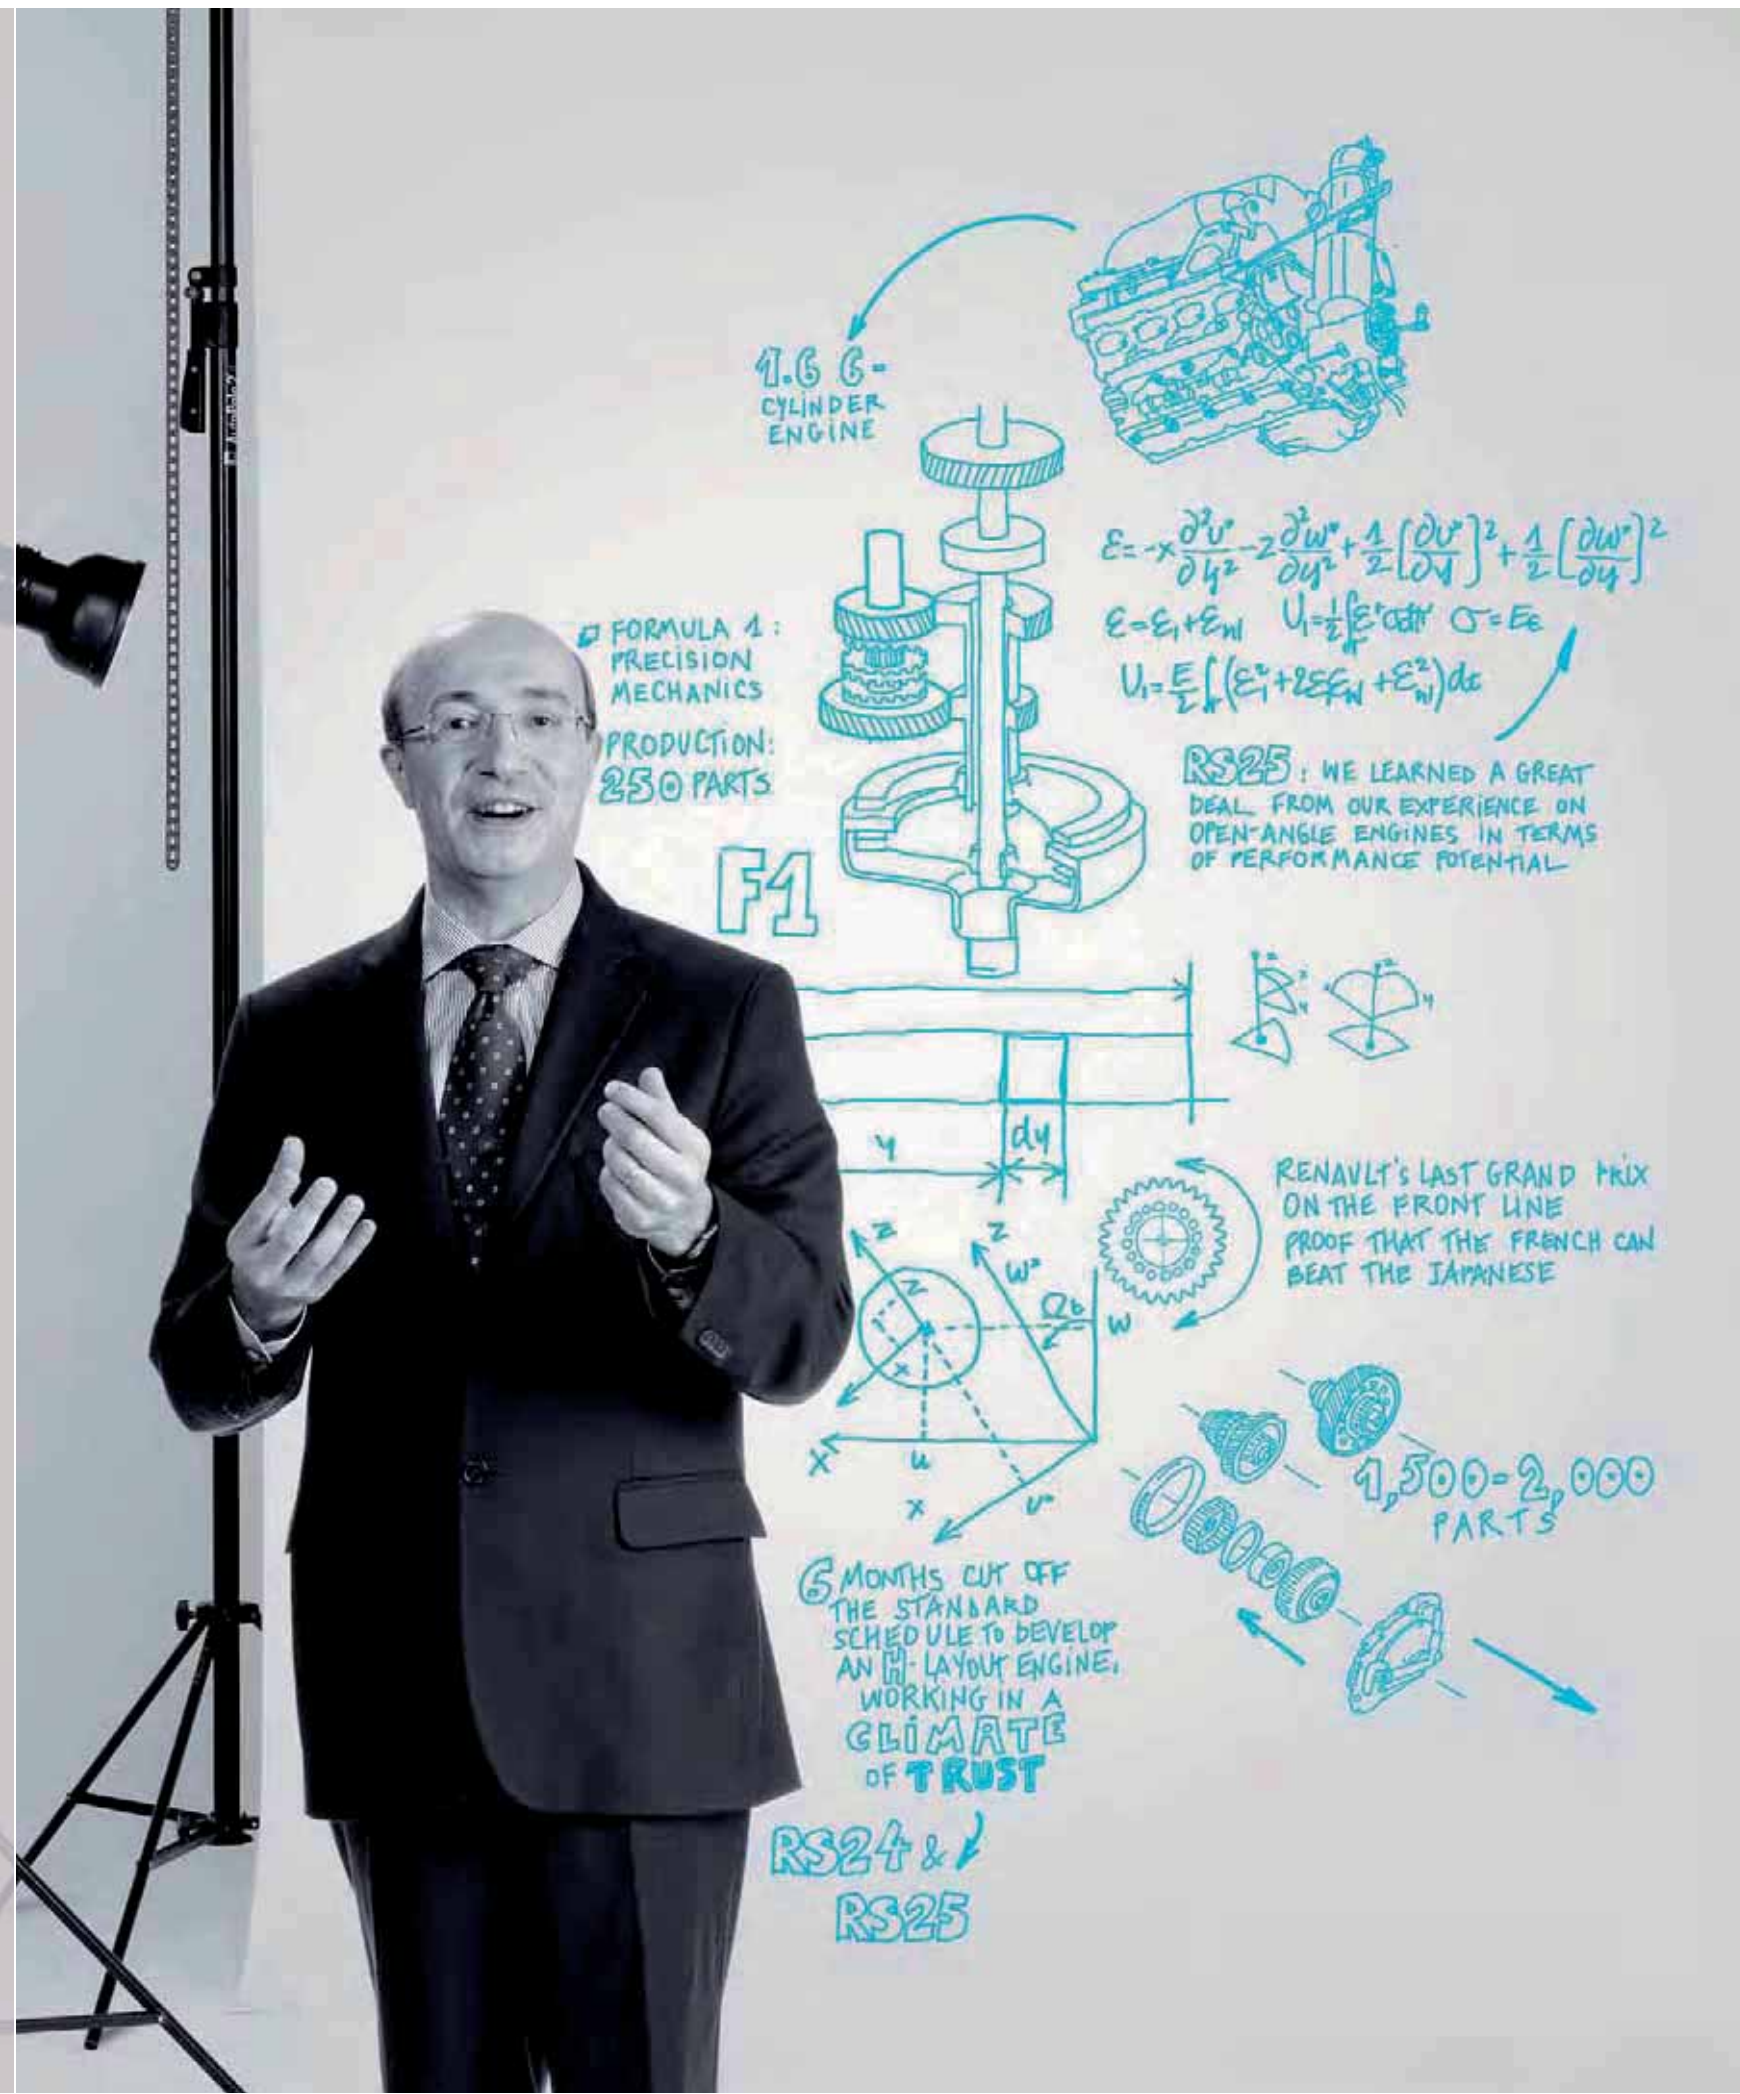 1.6 6-
CYLINDER
ENGINE
FORMULA 1:
PRECISION
MECHANICS
PRODUCTION:
250 PARTS
F1
ε=-x ∂²v°/∂y² -z ∂²w°/∂y² + 1/2 [∂v°/∂y]² + 1/2 [∂w°/∂y]²
σ=Eε
RS25: WE LEARNED A GREAT
DEAL FROM OUR EXPERIENCE ON
OPEN-ANGLE ENGINES IN TERMS
OF PERFORMANCE POTENTIAL
y
dy
RENAULT'S LAST GRAND PRIX
ON THE FRONT LINE
PROOF THAT THE FRENCH CAN
BEAT THE JAPANESE
Z
Z
W°
W
Z
X
X
u
X
1,500-2,000
PARTS
6 MONTHS CUT OFF
THE STANDARD
SCHEDULE TO DEVELOP
AN H-LAYOUT ENGINE,
WORKING IN A
CLIMATE
OF TRUST
RS24 &
RS25